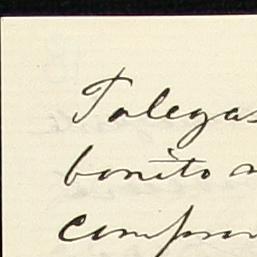 Talegas
bonito
compron